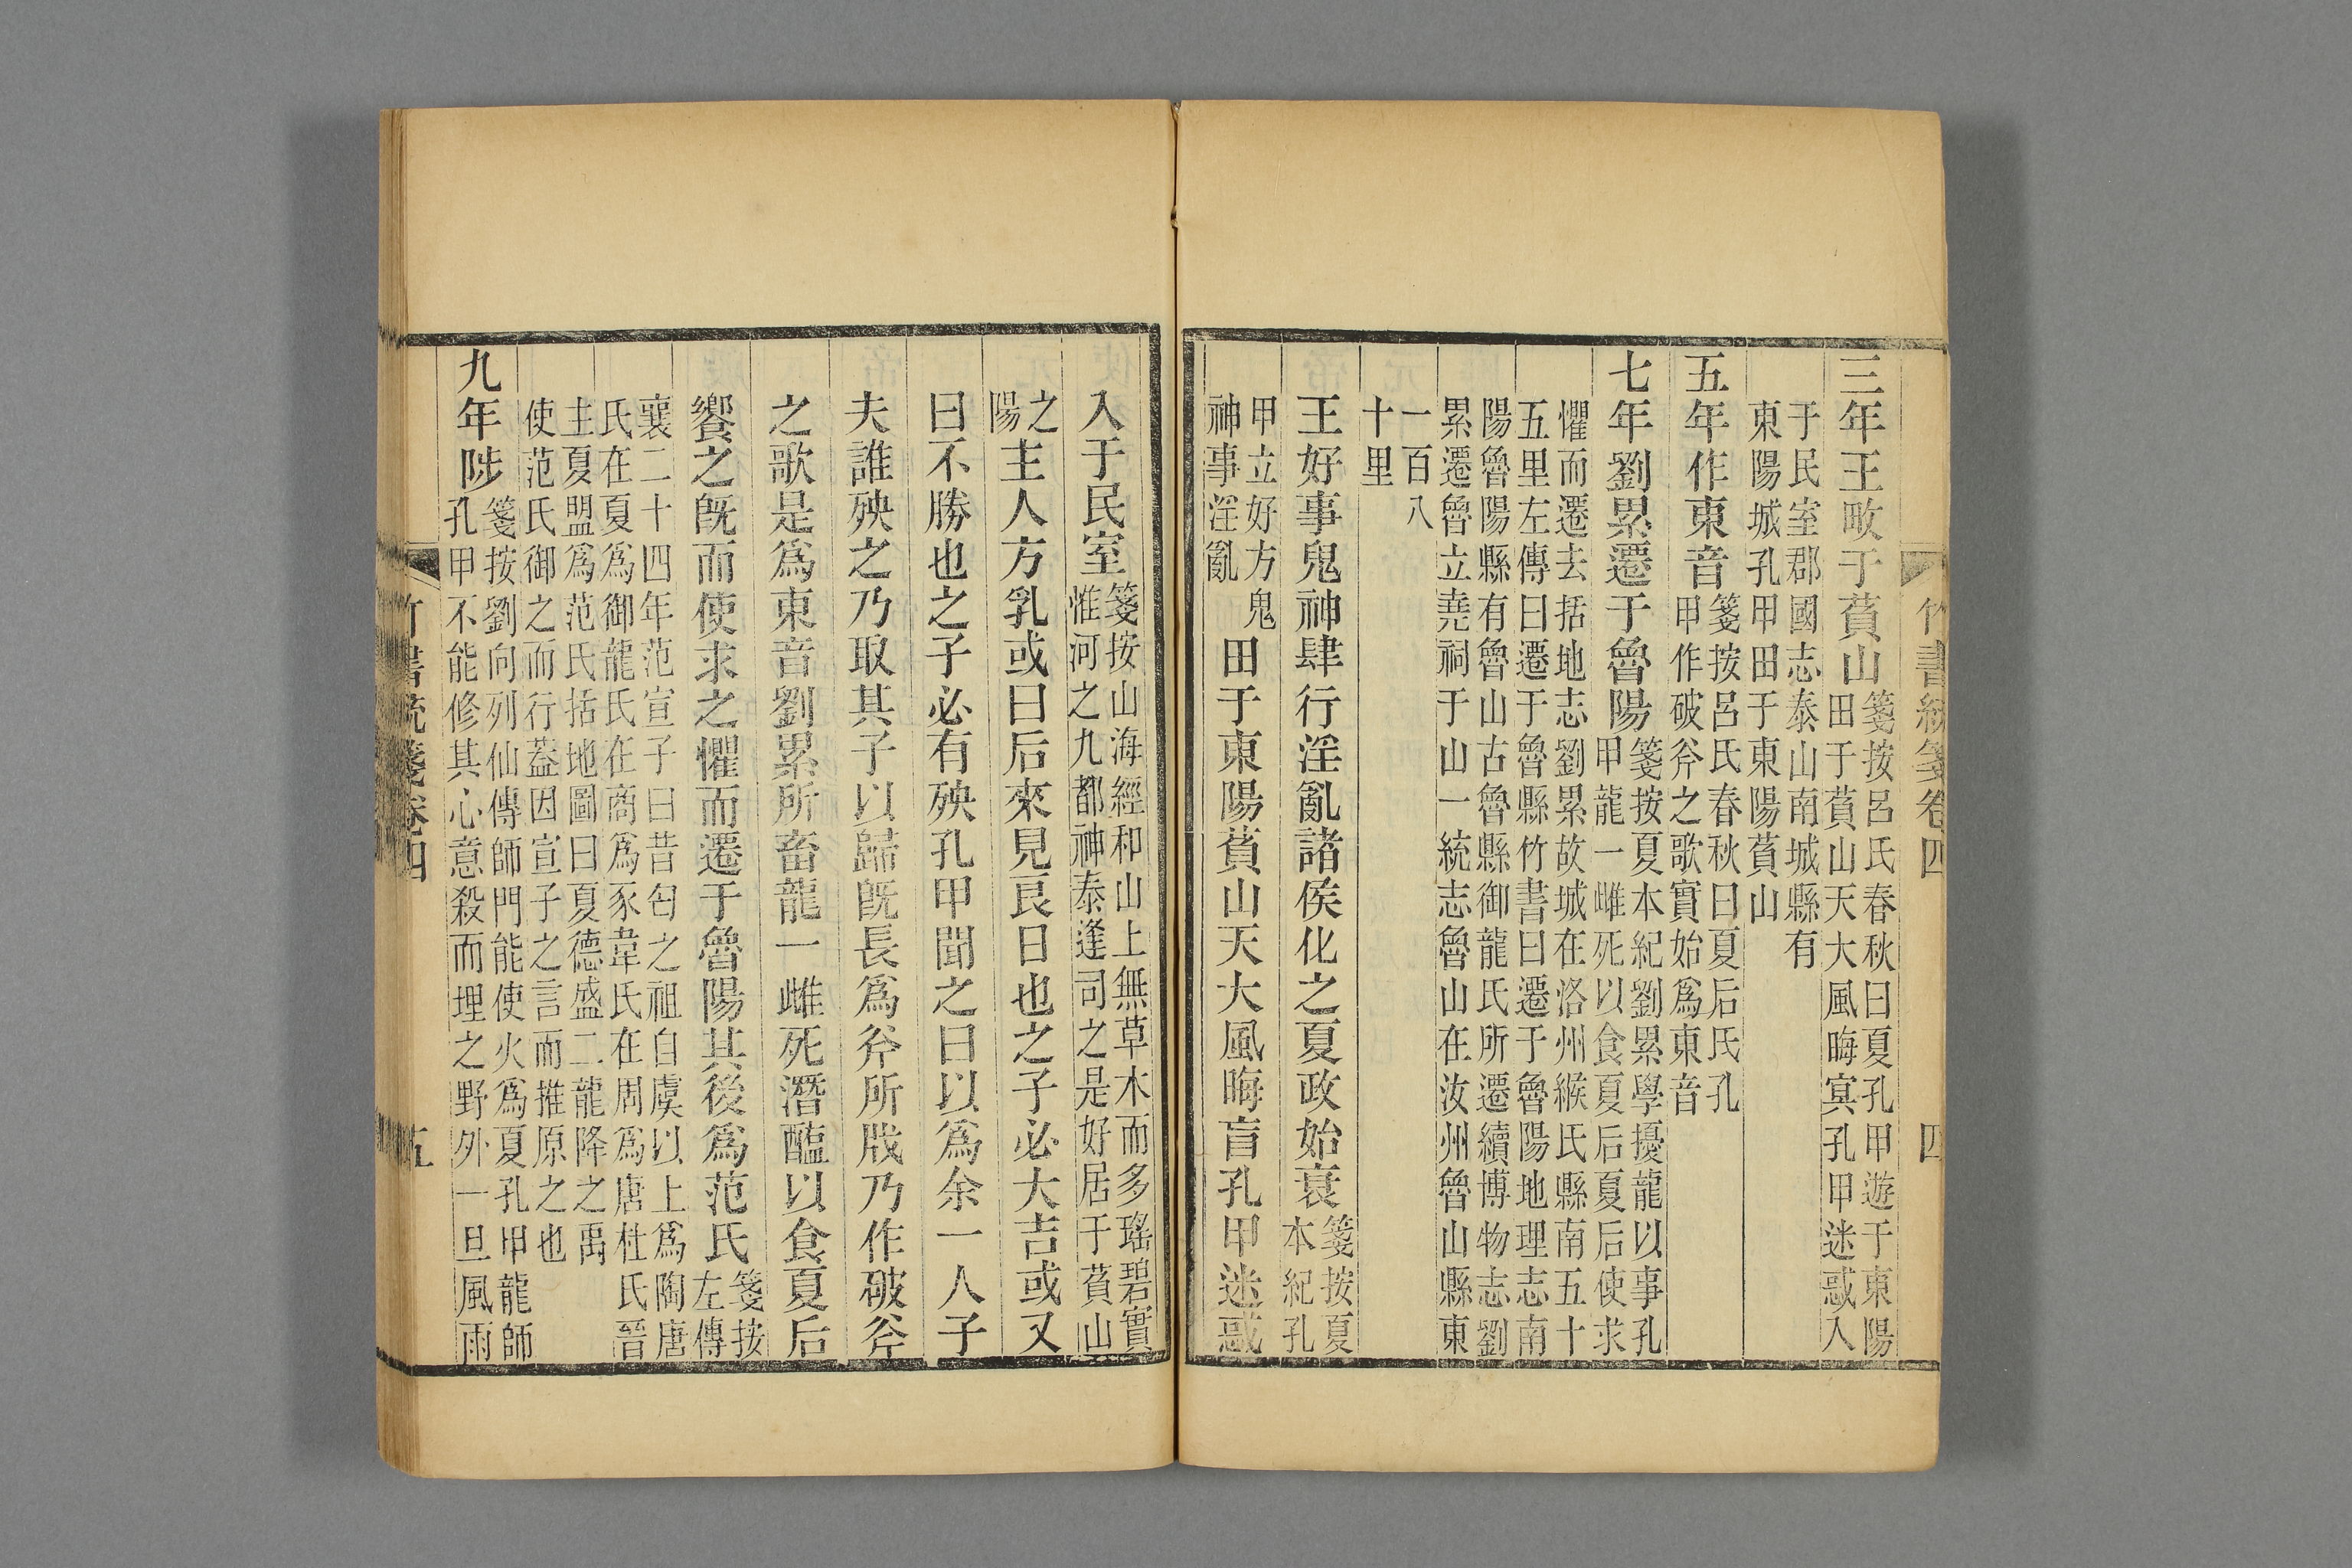 竹書統箋卷四 四
三年王畋于萯山箋按呂氏春秋曰夏孔甲遊于東陽田于萯山天大風晦冥孔甲迷惑入
于民室郡國志泰山南城縣有東陽城孔甲田于東陽萯山
五年作東音箋按呂氏春秋曰夏后氏孔甲作破斧之歌實始爲東音
七年劉累遷于魯陽箋按夏本紀劉累學擾龍以事孔甲龍一雌死以食夏后夏后使求
懼而遷去括地志劉累故城在洛州緱氏縣南五十五里左傳曰遷于魯縣竹書曰遷于魯陽地理志南
陽魯陽縣有魯山古魯縣御龍氏所遷續博物志劉累遷魯立堯祠于山一統志魯山在汝州魯山縣東
一百八十里
王好事鬼神肆行淫亂諸侯化之夏政始衰箋按夏本紀孔
甲立好方鬼神事淫亂田于東陽萯山天大風晦盲孔甲迷惑
入于民室箋按山海經和山上無草木而多瑤碧實惟河之九都神泰逢司之是好居于萯山
之陽主人方乳或曰后來見良日也之子必大吉或又
曰不勝也之子必有殃孔甲聞之曰以爲余一人子
夫誰殃之乃取其子以歸旣長爲斧所戕乃作破斧
之歌是爲東音劉累所畜龍一雌死潛醢以食夏后
饗之旣而使求之懼而遷于魯陽其後爲范氏箋按左傳
襄二十四年范宣子曰昔匄之祖自虞以上爲陶唐氏在夏爲御龍氏在商爲豕韋氏在周爲唐杜氏晉
主夏盟爲范氏括地圖曰夏德盛二龍降之禹使范氏御之而行蓋因宣子之言而推原之也
九年陟箋按劉向列仙傳師門能使火爲夏孔甲龍師孔甲不能修其心意殺而埋之野外一旦風雨
竹書統箋卷四 五